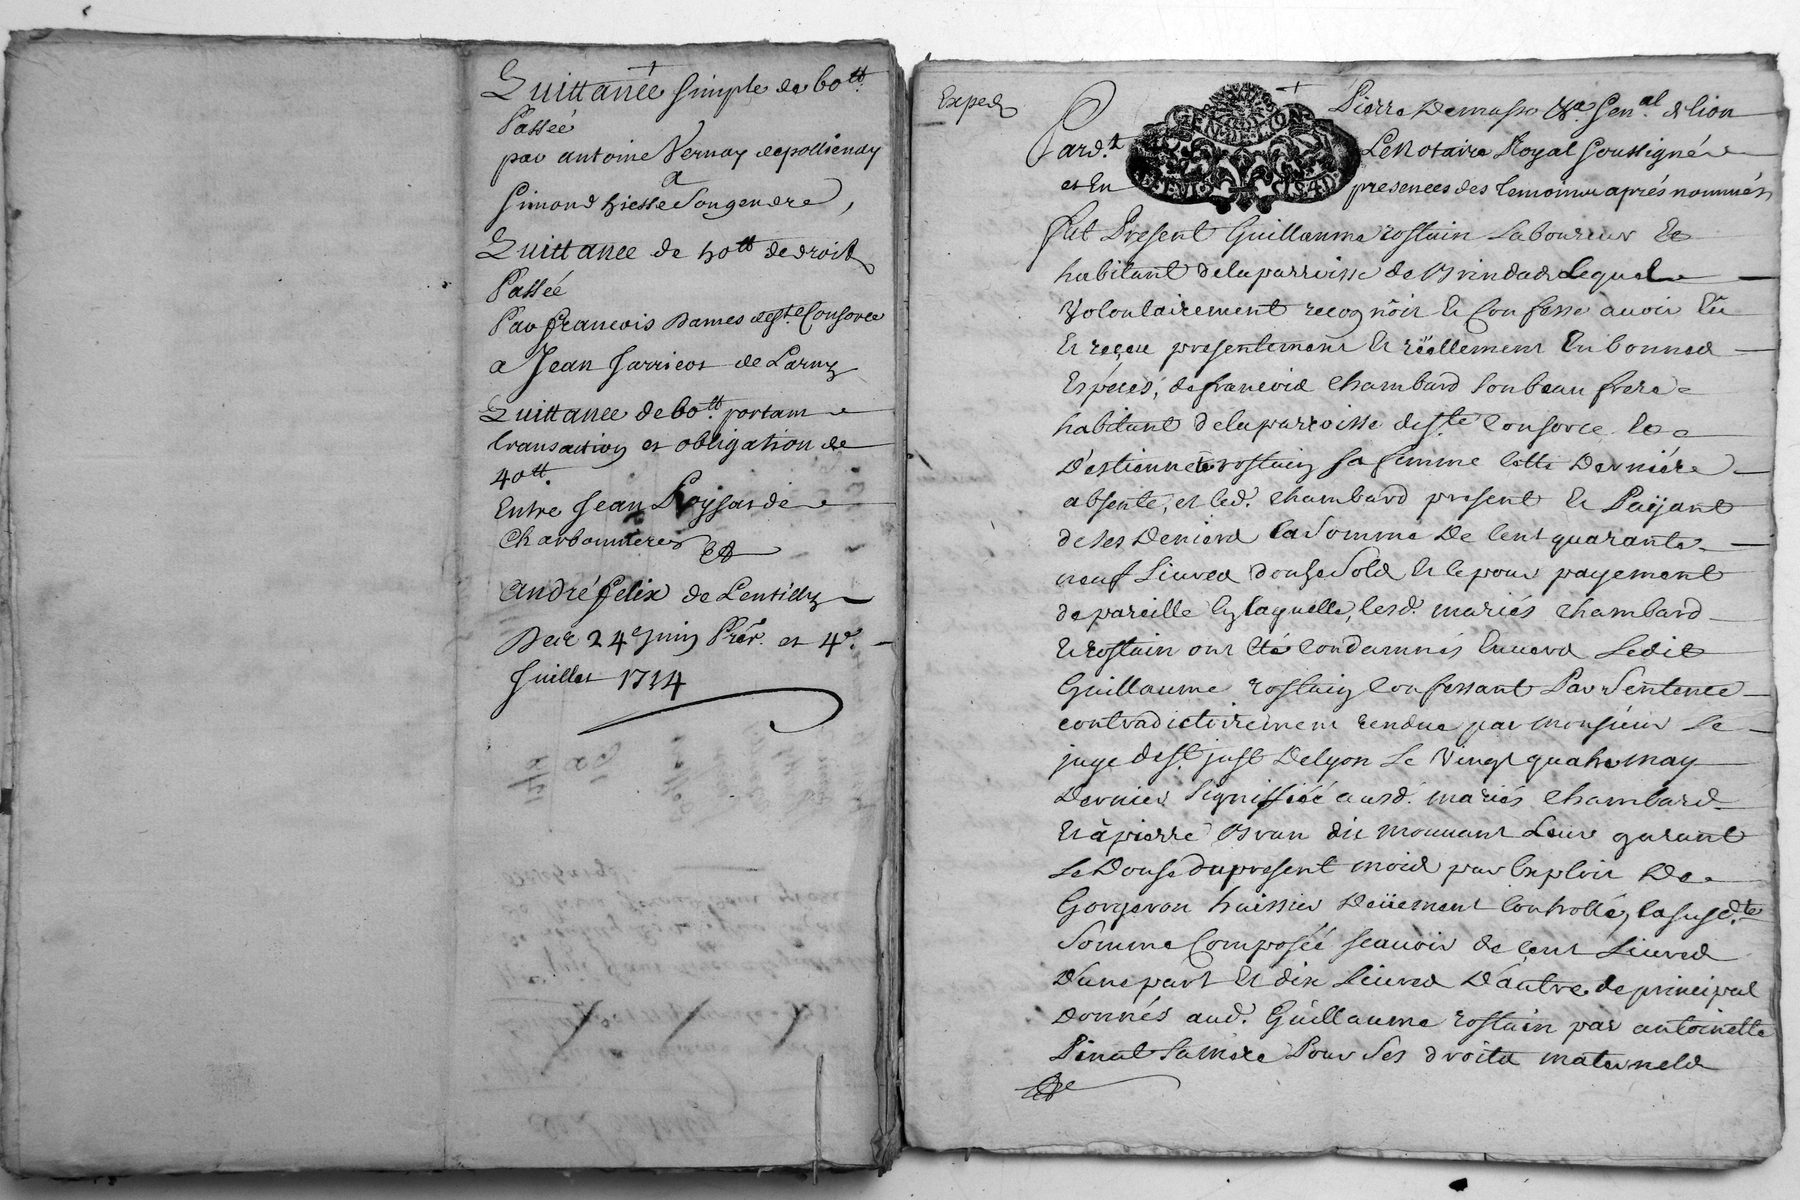 Quittance simple de 60tt.
Passée
par antoine Vernay de pollienay
a
Simond hiesse Son gendre,
Quittance de 50tt de droits
Passée
Par francois Dames de st. Consorce
a Jean Jarricot de Larny
Quittance de 60tt. portant
transaction et obligation de
40tt.
Entre Jean Loyssar de
Charbonnieres
et
André felix de Lentilly
Des 24e juin et 4e.
Juillet 1714
Exped
Pierre Demasso Ga. Genal. de lion
GEN. DE LION
Pard.t Le Notaire Royal Soussigné
et En presences des temoins aprés nommés
fut Present Guillaume rostain Laboureur et
habitant de la parroisse de Brindas Lequel
Volontairement recognoit et Confesse avoir Eû
et reçeu presentement et réellement En bonnes
Espéces, de francois chambard son beau frere
habitant de la parroisse de ste. Consorce et
D'estiennette rostain sa femme Cette Derniére
absente, et led. chambard present et Païjant
de ses Deniers la Somme De Cent quarante
neuf Livres douze Sols et ce pour payement
de pareille En laquelle, lesd. mariés chambard
et rostain ont Eté Condamnés Envers Ledit
Guillaume rostain Confessant Par Sentence
contradictoirement rendue par monsieur Le
juge de st. just De Lyon Le Vingt quatre may
Dernier Signiffiée ausd. mariés chambard
et à pierre Brun dit mouvant Leur garant
Le Douse du present mois par Exploit De
Gorgeron huissier Deüement Controllé, la susd.te
Somme Composée scavoir de cent Livres
D'une part et dix Livres D'autre de principal
Donnés aud. Guillaume rostain par antoinette
Pinat sa mere Pour Ses droits maternels